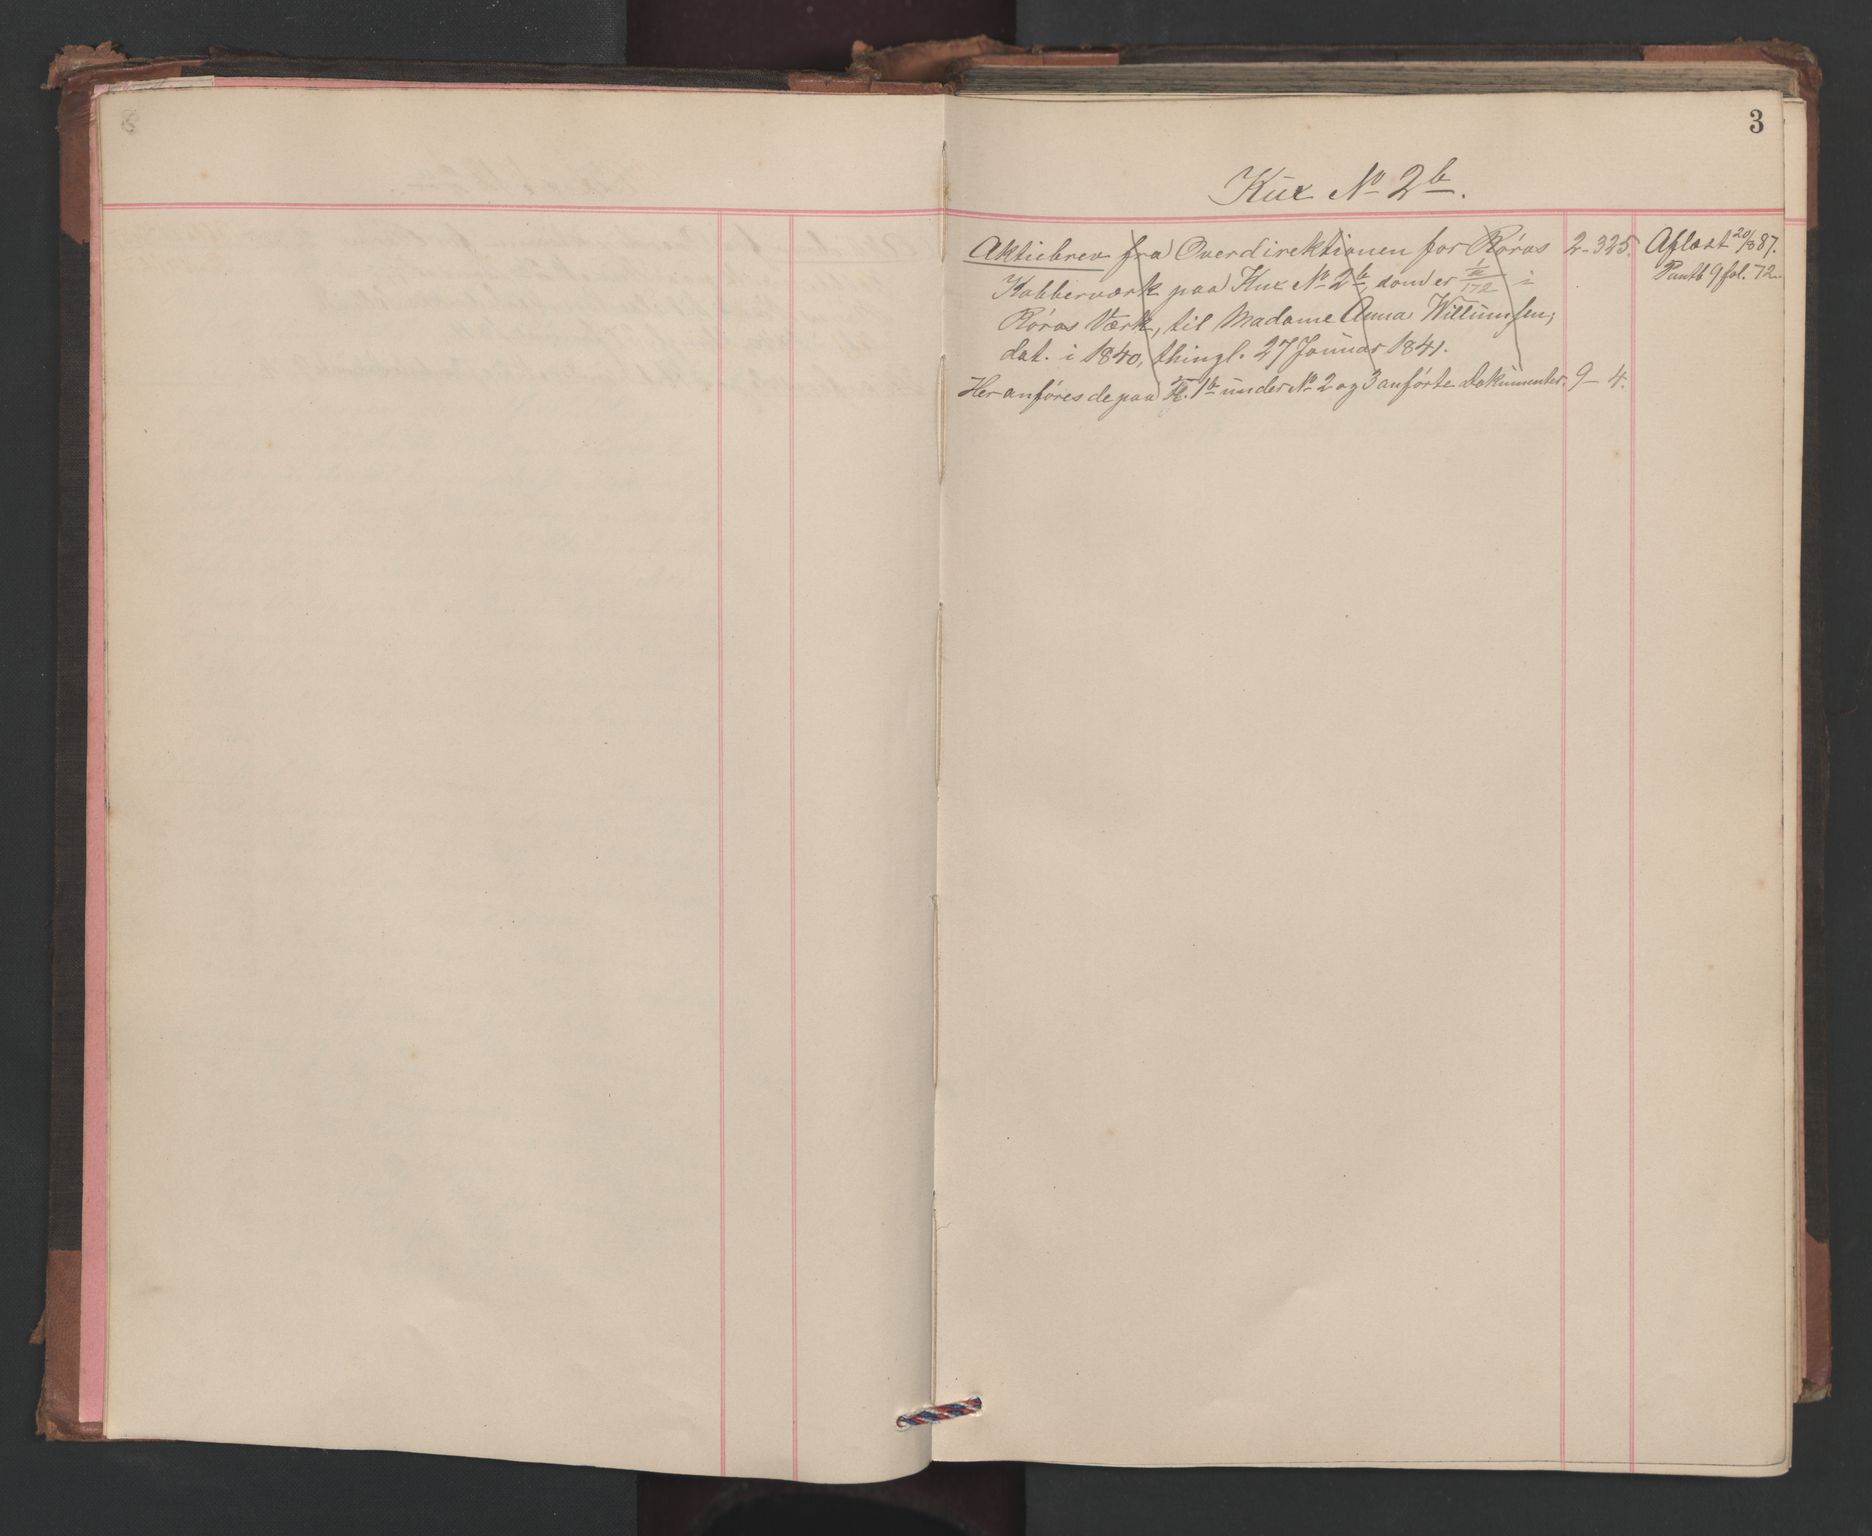 3
Kux No 2b.
Aktiebrev fra Overdirektionen for Røros 2-325. Aflæst 20/8 87.
Kobberværk paa Kux No 2b, som er 1/172 i Pantb 9 fol. 72.
Røros Værk, til Madame Anna Willumsen,
dat. i 1840, thingl. 27 Januar 1841.
Her anføres de paa 1b under No 2 og 3 anførte Dokumenter. 9-4.